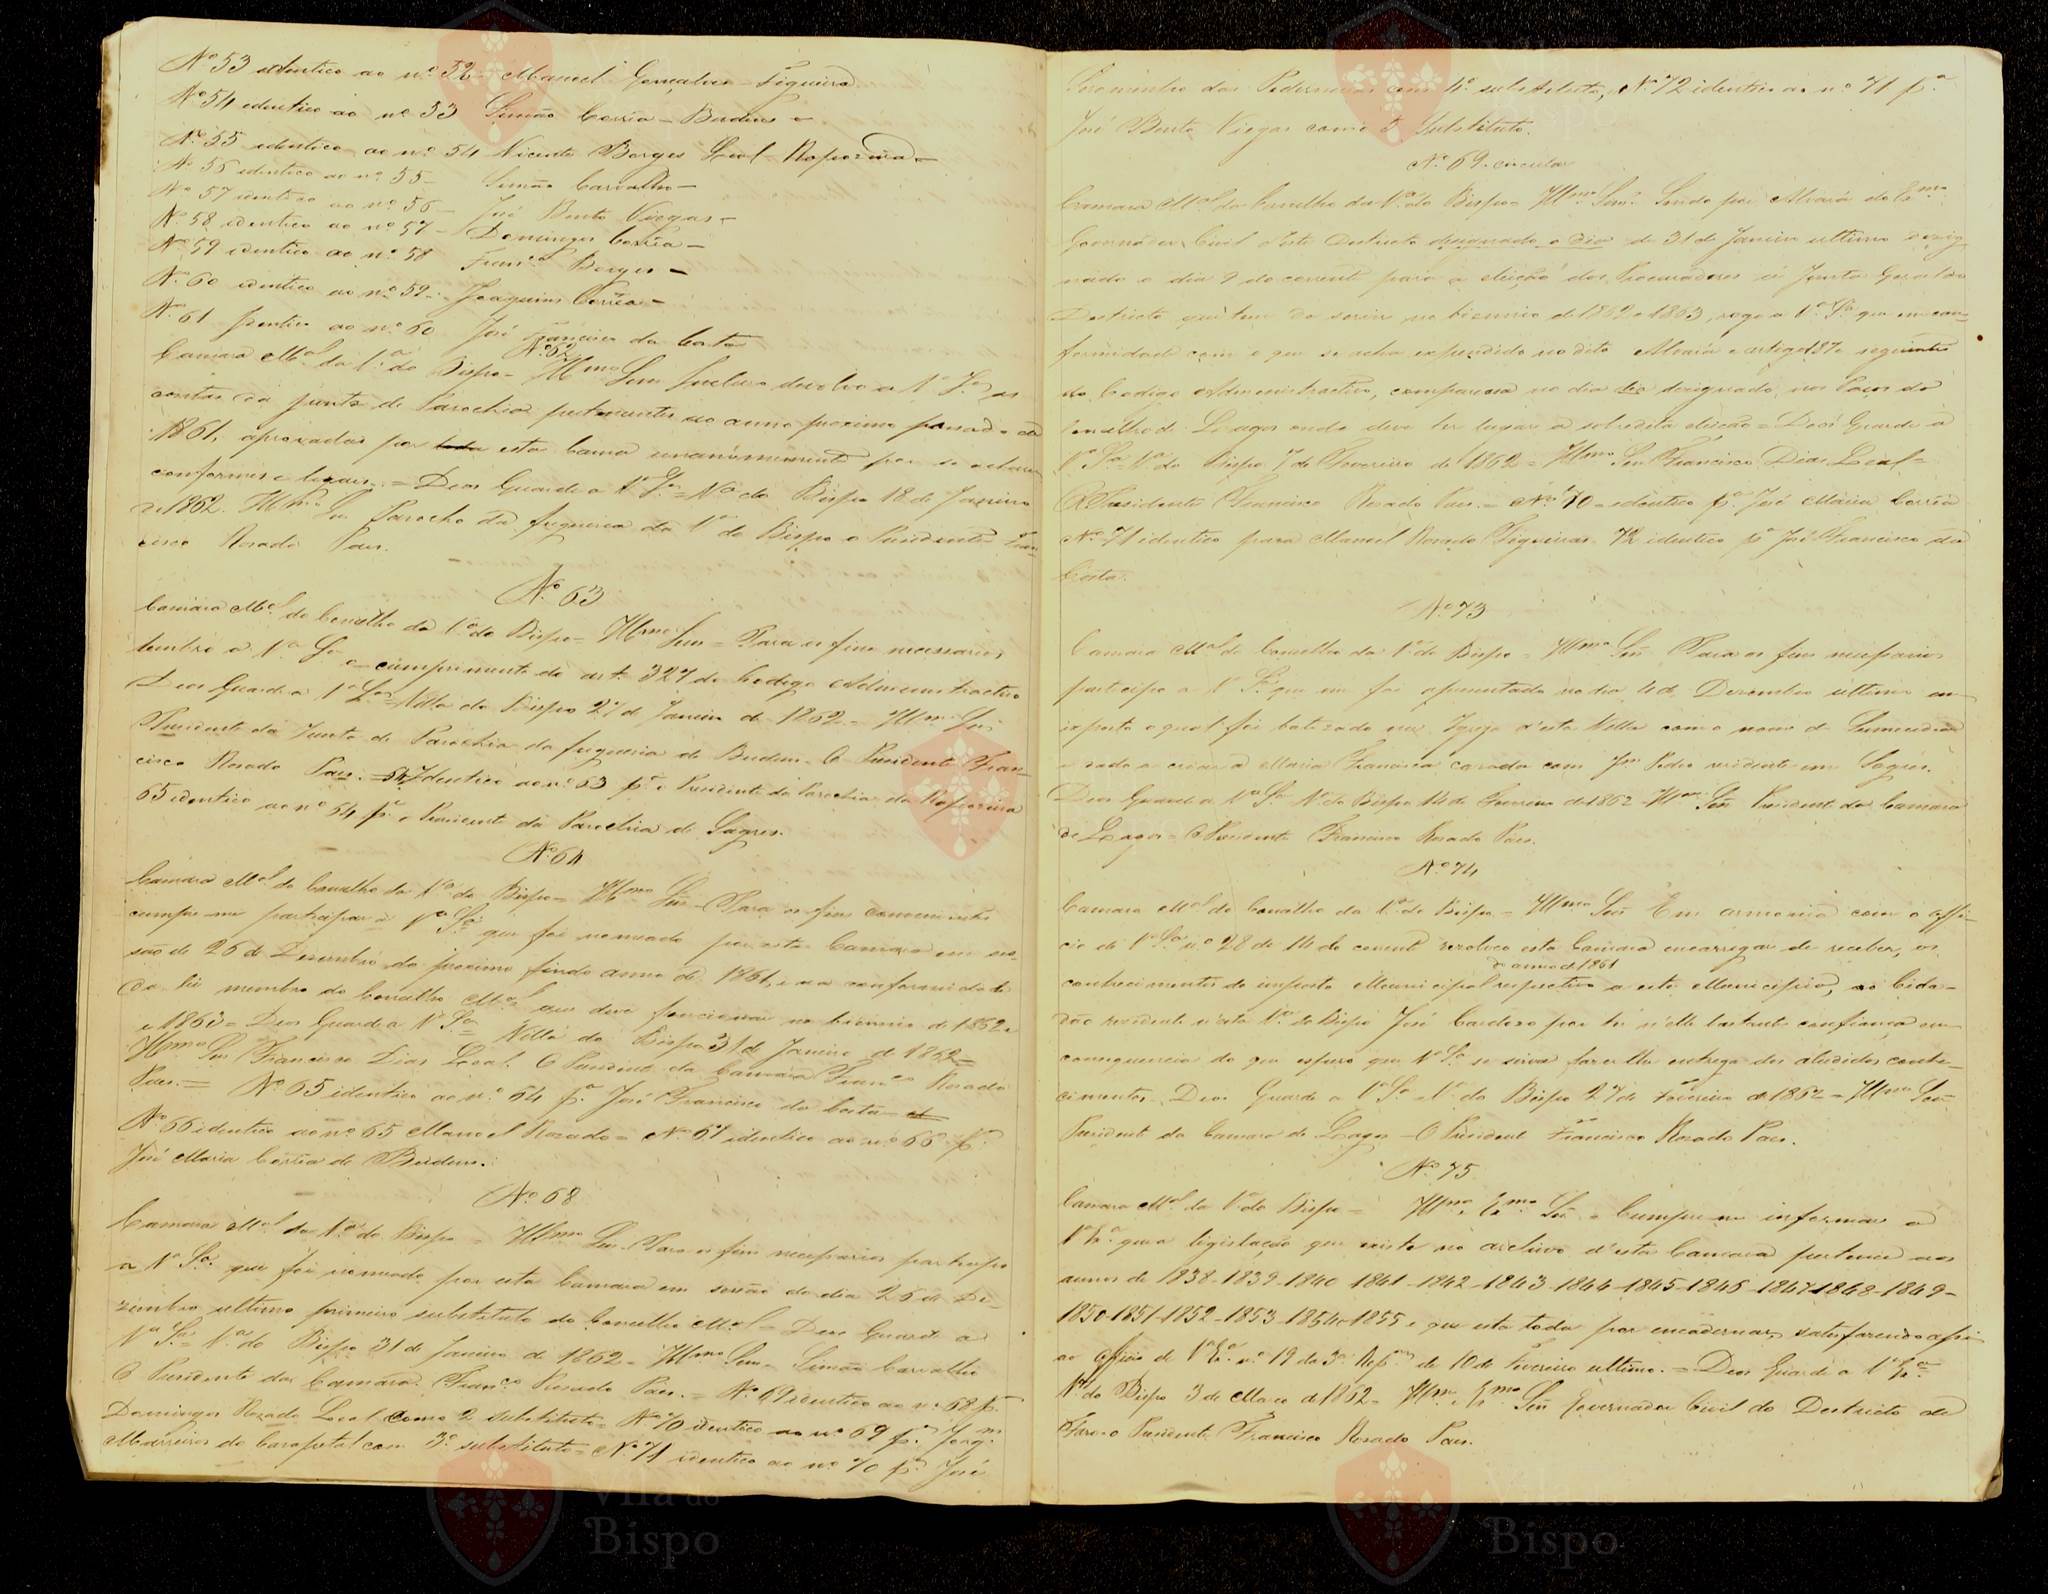 Nº 53 identico ao nº 52 Manoel Gonçalves - Figueira
Nº 54 identico ao nº 53 Simão Corrêa - Budens -
Nº 55 identico ao nº 54 Vicente Borges Leal - Rapozeira -
Nº 56 identico ao nº 55 - Simão Carvalho -
Nº 57 identico ao nº 56 - José Bento Viegas -
Nº 58 identico ao nº 57 - Domingos Corrêa -
Nº 59 identico ao nº 58 Franco Borges -
Nº 60 identico ao nº 59 - Joaquim Corrêa -
Nº 61 identico ao nº 60 José Francisco da Costa
Nº 62
Camara Mal da Vª do Bispo - Illmo Snr Incluso devolvo a Vª Sª as
contas da junta de Parochia pertencentes ao anno proximo passado de
1861, aprovadas por esta Camara unanimemente por se acharem
conformes e legaes. = Deos Guarde a Vª Sª = Vª do Bispo 18 de Janeiro
de 1862. Illmo Snr Parocho da freguezia da Vª do Bispo o Presidente Fran-
cisco Rosado Paes.
Nº 63
Camara Mal do Concelho da Vª do Bispo - Illmo Snr = Para os fins necessarios
lembro a Vª Sª o cumprimento do artº 327 do Codigo Administractivo
Deos Guarde a Vª Sª = Villa do Bispo 27 de Janeiro de 1862 = Illmo Snr
Presidente da Junta de Parochia da freguezia de Budens - O Presidente Fran-
cisco Rosado Paes. = 64 Identico ao nº 63 pª o Presidente da Parochia da Rapozeira
65 identico ao nº 64 pª o Presidente da Parochia de Sagres.
Nº 64
Camara Mal do Concelho da Vª do Bispo = Illmo Snr - Para os fins convenientes
cumpre-me participar a Vª Sª que foi nomeado por esta Camara em ses-
são de 26 de Dezembro do proximo findo anno de 1861, e na conformidade
da lei membro do Concelho Mal que deve funccionar no biennio de 1862 e
a 1863 = Deos Guarde a Vª Sª Villa do Bispo 31 de Janeiro de 1862 =
Illmo Snr Francisco Dias Leal. O Presidente da Camara Franco Rosado
Paes. = Nº 65 identico ao nº 64 pª José Francisco da Costa
Nº 66 identico ao nº 65 Manoel Rosado = Nº 67 identico ao nº 66 pª
José Maria Corrêa de Budens.
Nº 68
Camara Mal da Vª do Bispo = Illmo Snr - Para os fins necessarios participo
a Vª Sª que foi nomeado por esta Camara em sessão do dia 26 de De-
zembro ultimo primeiro substituto do Concelho Mal = Deos Guarde a
Vª Sª = Vª do Bispo 31 de Janeiro de 1862 = Illmo Snr - Simão Carvalho
O Presidente da Camara. Franco Rosado Paes. = Nº 69 identico ao nº 68 pª
Domingos Rosado Leal como 2º substituto = Nº 70 identico ao nº 69 pª Joaqm
Marreiros do Carapetal com 3º substituto = Nº 71 identico ao nº 70 pª José
das Pedernneiras com 4º substituto, Nº 72 identico ao nº 71 pª
José Bento Viegas como 5º Substituto.
Nº 69 - circular
Camara Mal do Concelho da Vª do Bispo = Illmo Snr. Sendo por Alvará do Exmo
Governador Civil deste Destricto designado o dia de 31 de Janeiro ultimo dezig-
nado o dia 9 do corrente para a eleição dos Procuradores á Junta Geral do
Destricto que tem de servir no biennio de 1862 e 1863, rogo a Vª Sª que em con-
formidade com o que se acha expendido no dito Alvará e artigo 187 e seguintes
do Codigo Administractivo, compareça no dia designado, nos Paços do
Concelho de Lagos onde deve ter lugar a sobredita eleição = Deos Guarde a
Vª Sª Vª do Bispo 7 de Fevereiro de 1862 = Illmo Snr Francisco Dias Leal =
O Presidente Francisco Rosado Paes. = Nº 70 = identico pª José Maria Corrêa
Nº 71 identico para Manoel Rosado Figueiras 72 identico pª José Francisco da
Costa.
Nº 73
Camara Mal do Concelho da Vª do Bispo = Illmo Snr Para os fins necessarios
participo a Vª Sª que me foi apresentado no dia 4 de Dezembro ultimo um
exposto o qual foi batizado na Igreja d'esta Villa com o nome de
e dado a criar a Maria Francisca cazada com Jm Pedro rezidente em Sagres.
Deos Guarde a Vª Sª Vª do Bispo 14 de Fevereiro de 1862 Illmo Snr Presidente da Camara
de Lagos = O Presidente Francisco Rosado Paes.
Nº 74
Camara Mal do Concelho da Vª do Bispo = Illmo Snr Em armonia com o offi-
cio de Vª Sª nº 28 de 14 do corrente rezolveo esta Camara encarregar de receber, os
do anno de 1861
conhecimentos do imposto Municipal respectivo a este Municipio, ao Cida-
dão rezidente n'esta Vª do Bispo José Cardozo por ter n'elle bastante confiança, em
consequencia do que espero que Vª Sª se sirva fazer lhe entrega dos aludidos conhe-
cimentos. Deos Guarde a Vª Sª Vª do Bispo 27 de Fevereiro de 1862 = Illmo Snr
Presidente da Camara de Lagos - O Presidente Francisco Rosado Paes.
Nº 75
Camara Mal da Vª do Bispo = Illmo e Exmo Snr = Cumpre-me informar a
Vª Exª que a legislação que existe no archivo d'esta Camara pertence aos
annos de 1838-1839-1840-1841-1842-1843-1844-1845-1846-1847-1848-1849-
1850-1851-1852-1853-1854 e 1855 e que esta toda por encadernar, satisfazendo assi
ao officio de Vª Exª nº 19 da 3ª Repam de 10 de Fevereiro ultimo. = Deos Guarde a Vª Exª
Vª do Bispo 3 de Março de 1862 = Illmo e Exmo Snr Governador Civil do Destricto de
Faro o Presidente Francisco Rosado Paes.
Vila do
Bispo
Vila do
Bispo